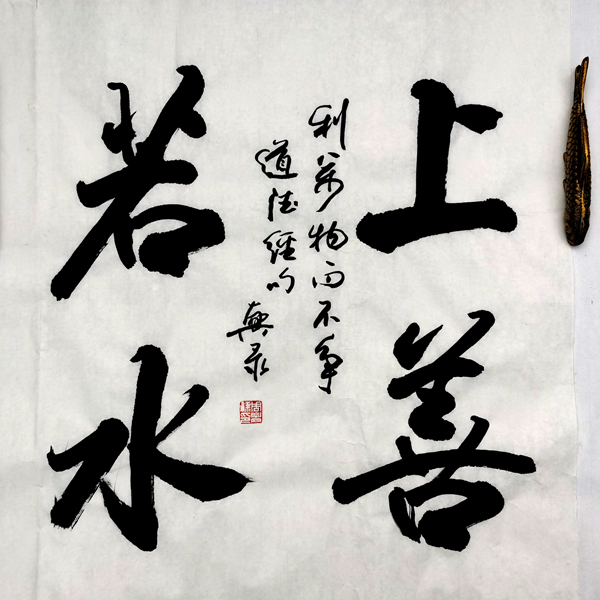 上善
若水
利万物而不争
道德经句
兴录